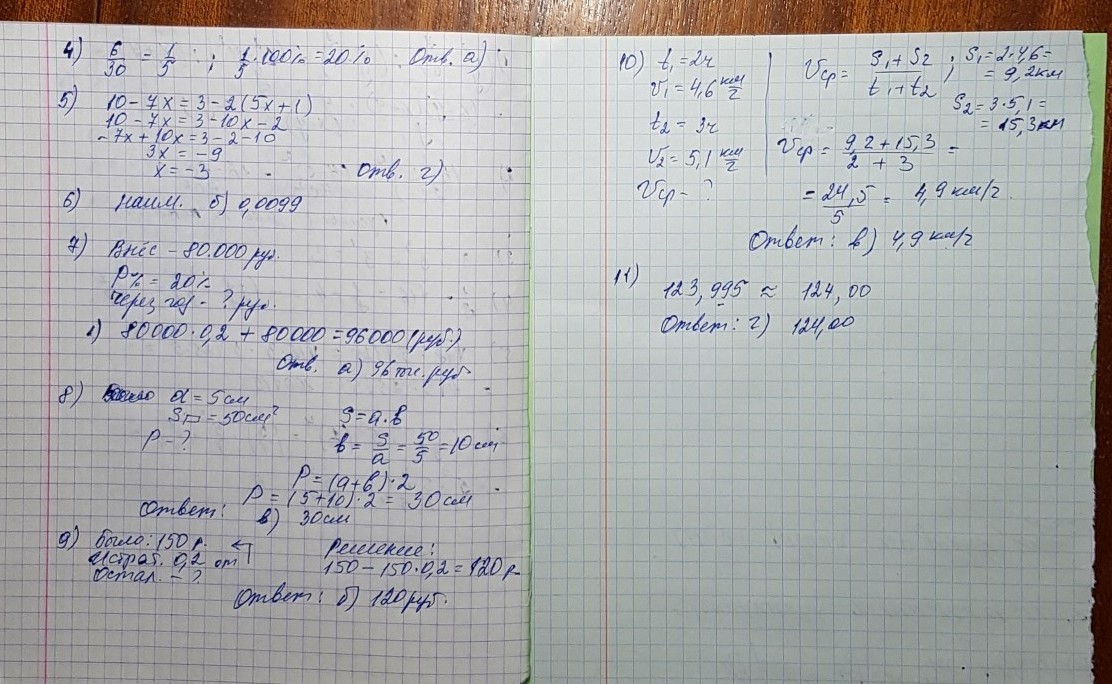 4) 6/30 = 1/5 ; 1/5 · 100% = 20% Отв. а)
5) 10 - 7x = 3 - 2(5x+1)
10 - 7x = 3 - 10x - 2
-7x + 10x = 3 - 2 - 10
3x = -9
x = -3
Отв. г)
6) наим. б) 0,0099
7) Внёс - 80.000 руб.
P% = 20%
Через год - ? руб.
1) 80000 · 0,2 + 80000 = 96000 (руб.)
Отв. а) 96 тыс. руб
8) a = 5 см
S▭ = 50 см²
P - ?
S = a · b
b = S/a = 50/5 = 10 см
P = (a+b) · 2
P = (5+10) · 2 = 30 см
Ответ: в) 30 см
9) Было: 150 р.
Истрат. 0,2 от
Остал. - ?
Решение:
150 - 150 · 0,2 = 120 р
Ответ: б) 120 руб.
10) t₁ = 2ч
v₁ = 4,6 км/ч
t₂ = 3ч
v₂ = 5,1 км/ч
Vср - ?
Vср = S₁ + S₂ / t₁ + t₂ ; S₁ = 2 · 4,6 =
= 9,2 км
S₂ = 3 · 5,1 =
= 15,3 км
Vср = 9,2 + 15,3 / 2 + 3 =
= 24,5/5 = 4,9 км/ч.
Ответ: в) 4,9 км/ч
11) 123,995 ≈ 124,00
Ответ: г) 124,00